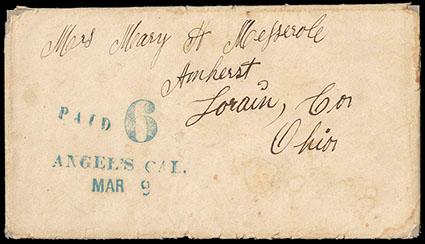 Mrs Mary H Messerole
Amherst
Lorain, Co.
Ohio
PAID 6
ANGEL'S CAL.
MAR 9